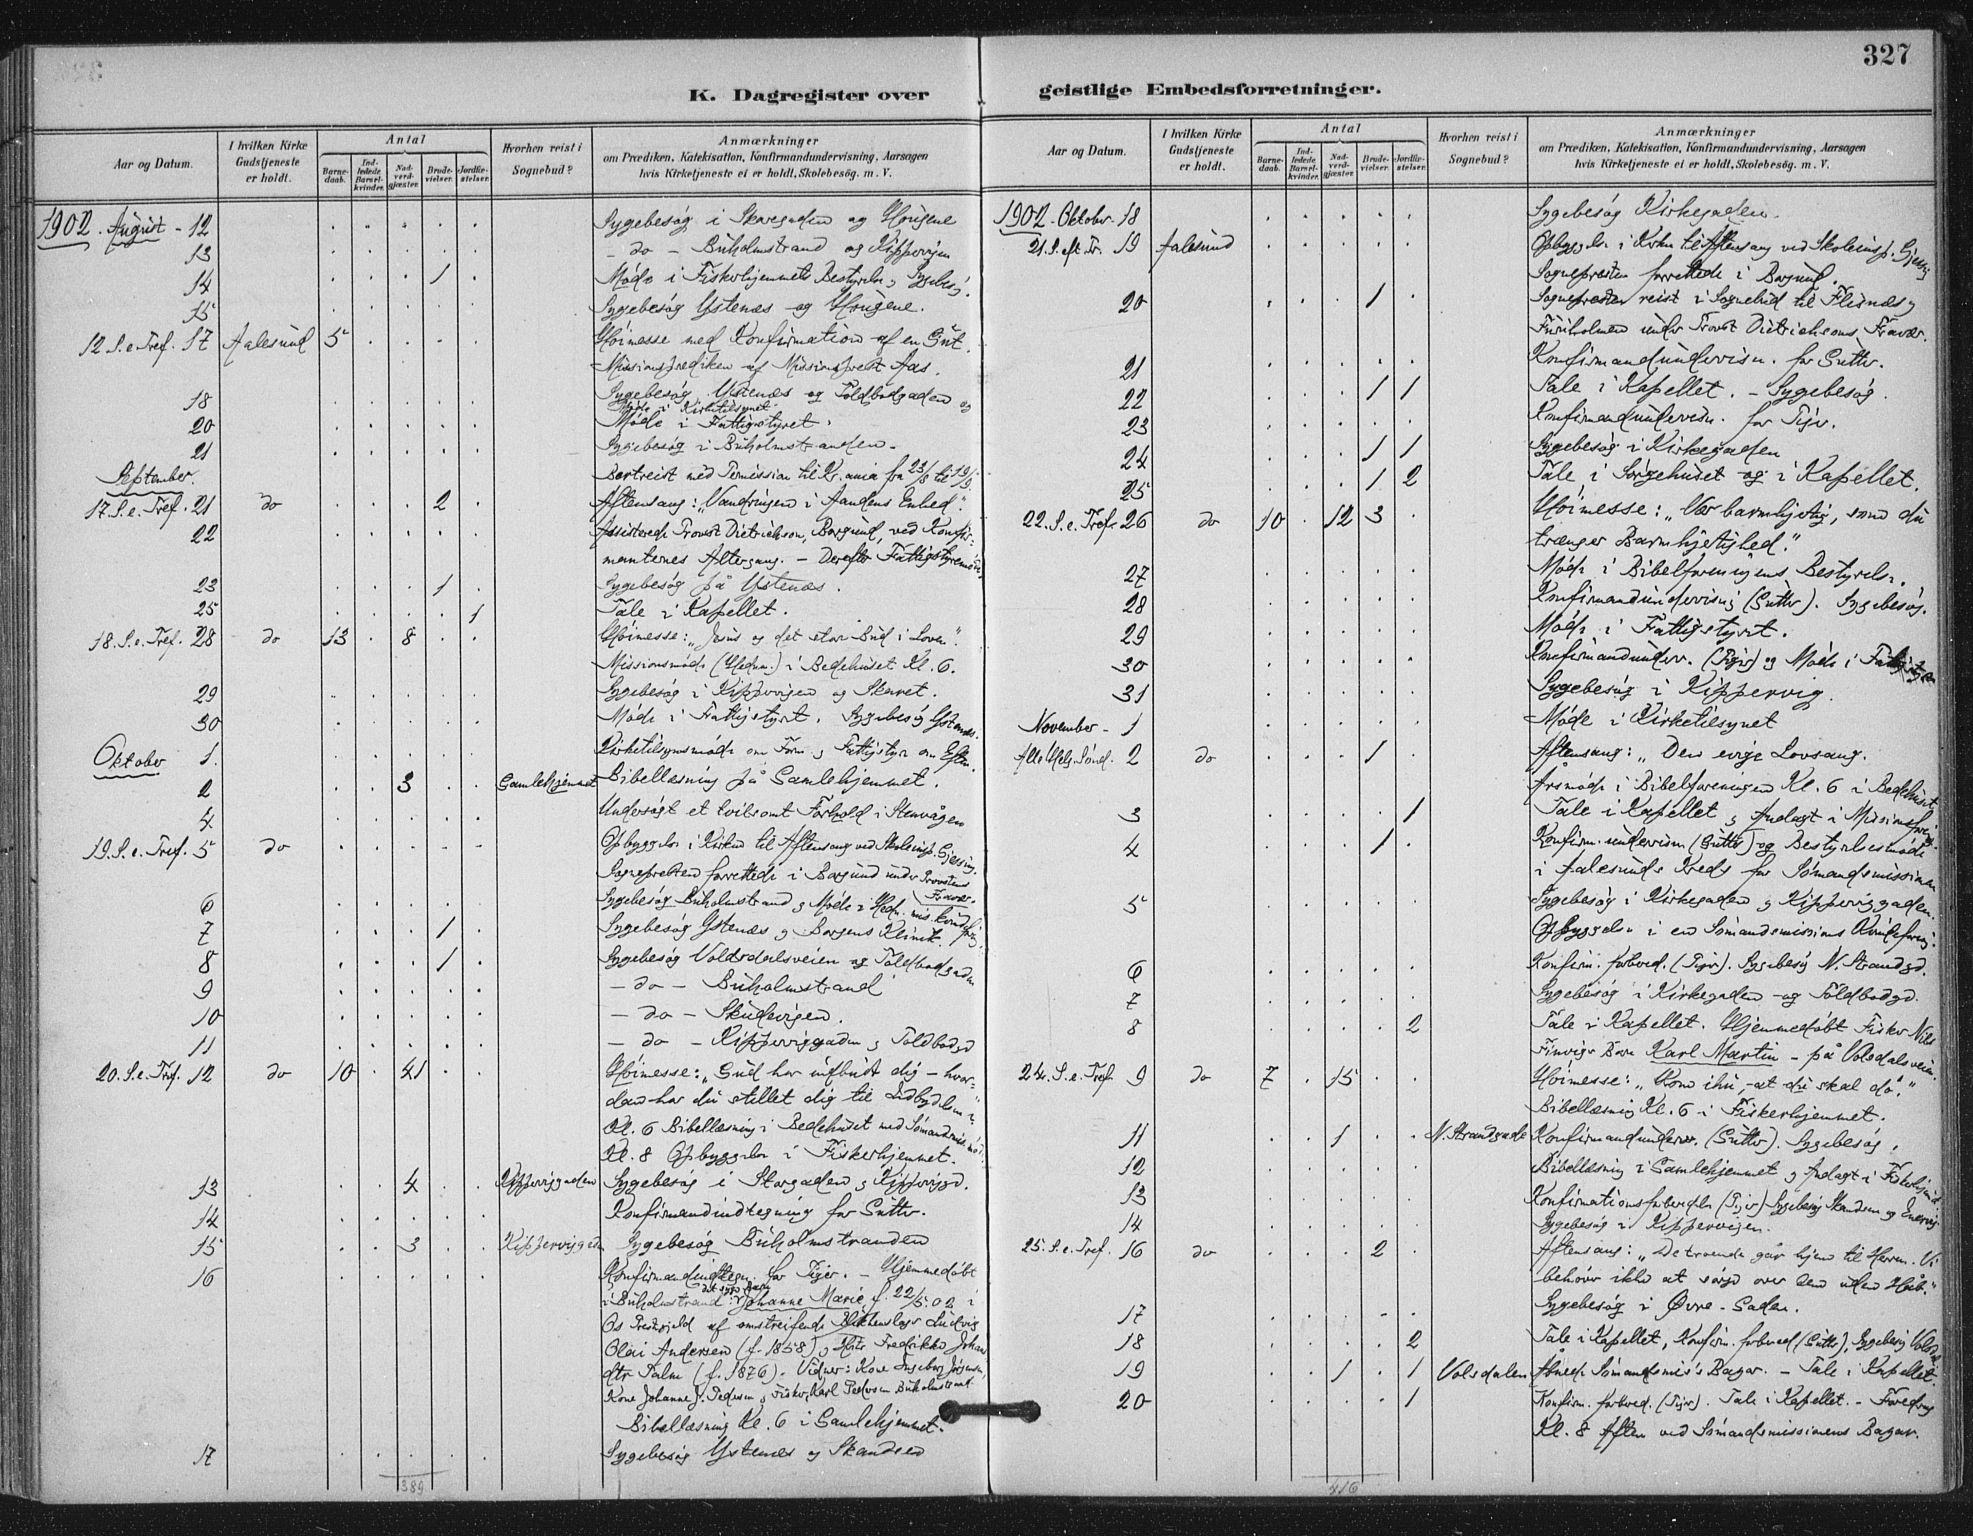 327
K. Dagregister over geistlige Embedsforretninger.
Aar og Datum.
I hvilken Kirke Gudstjeneste er holdt.
Antal
Barne-daab.
Ind-ledede Barsel-kvinder.
Nad-verd-gjæster.
Brude-vielser.
Jordfæ-stelser.
Hvorhen reist i Sognebud?
Anmærkninger
om Prædiken, Katekisation, Konfirmandundervisning, Aarsagen
hvis Kirketjeneste ei er holdt, Skolebesøg. m. V.
1902. August - 12 Sygebesøg i Skaregaden og
13 - do - Buholmstrand og Kippervigen
14 1 Møde i Fiskerhjemmets Bestyrelse,
15 Sygebesøg Ystenæs og
12 S.e.Tref. 17 Aalesund 5 Høimesse med Konfirmation af en Gut.
Missionsprædiken af Missionsprest Aas.
18 Sygebesøg Ystenæs og Toldbodgaden og
Møde i Kirketilsynet
20 Møde i Fattigstyret.
21 Sygebesøg i Buholmstranden.
September. Bortreist med Permission til Kr.ania fra 23/8 til 19/9.
17. S.e.Tref. 21 do 2 Aftensang: "Vandringen i Aandens Enhed".
22 Assisterede Provst Dietrichson, Borgund, ved Konfir-
manternes Altergang. - Derefter Fattigstyremøde
23 1 Sygebesøg på Ystenæs.
25 1 Tale i Kapellet.
18. S.e.Tref. 28 do 13 8 Høimesse: "Jesus og det store Bud i Loven".
Missionsmøde (Hedn.) i Bedehuset Kl. 6.
29 Sygebesøg i Kippervigen og Skaret.
30 Møde i Fattigstyret. Sygebesøg Ystenæs.
Oktober 1. Kirketilsynsmøde om Form. og Fattigstyr. om Efterm.
2 3 Gamlehjemmet Bibellæsning på Gamlehjemmet.
4 Undersøgt et tvilsomt Forhold i Stenvågen
19. S.e.Tref. 5 do Opbyggelse i Kirken til Aftensang ved Skoleinsp. Gjessing.
Sognepresten forrettede i Borgund under Provstens
Fravær.
6 Sygebesøg Buholmstrand og Møde i Hedn. mis. kvindeforg.
7 1 Sygebesøg Ystenæs og Borgens Klinik.
8 1 Sygebesøg Voldsdalsveien og Toldbodgaden
9 - do - Buholmstrand
10 - do - Skudevigen.
11 - do - Kippervigaden og Toldbodgd
20. S.e.Tref. 12 do 10 41 Høimesse: "Gud har indbudt dig - hvor-
dan har du stillet dig til Indbydelsen?"
Kl. 6 Bibellæsning i Bedehuset med Sømandsmis.møde.
Kl. 8 Opbyggelse i Fiskerhjemmet.
13 4 Kippervigaden Sygebesøg i Skaregaden og Kippervigd.
14 Konfirmandindtegning for Gutter.
15 3 Kippervigd Sygebesøg Buholmstranden
16 Konfirmandindtegn. for Piger. - Hjemmedøbt
i Buholmstrand: det syge Barn Johanne Marie f. 22/5 02 i
Os Prestegjeld af omstreifende Blikkenslager Ludvig
Olai Andersen (f. 1858) og Hstr. Fredrikke Johan
dtr. Palm (f. 1876). Vidner: Kone Ingeborg Jørgensen,
Kone Johanne J. Pedersen, Fisker Karl Pedersen Buholmstrand
Bibellæsning Kl. 6 i Gamlehjemmet.
17 Sygebesøg Ystenæs og Skandsen
389
Aar og Datum.
I hvilken Kirke Gudstjeneste er holdt.
Antal
Barne-daab.
Ind-ledede Barsel-kvinder.
Nad-verd-gjæster.
Brude-vielser.
Jordfæ-stelser.
Hvorhen reist i Sognebud?
Anmærkninger
om Prædiken, Katekisation, Konfirmandundervisning, Aarsagen
hvis Kirketjeneste ei er holdt, Skolebesøg. m. V.
1902. Oktober. 18 Sygebesøg Kirkegaden.
21. S. eft. Tr. 19 Aalesund Opbyggelse i Kirken til Aftensang ved Skoleinsp. Gjessing
Sognepresten forrettede i Borgund.
20 1 Sognepresten reist i Sognebud til Flisnæs og
Furuholmen under Provst Dietrichsons Fravær.
21 Konfirmandundervisn. for Gutter.
22 1 1 Tale i Kapellet. - Sygebesøg.
23 Konfirmandundervisn. for Piger.
24 1 1 Sygebesøg i Kirkegaden
25 1 2 Tale i Sørgehuset og i Kapellet.
22. S.e.Tref. 26 do 10 12 3 Høimesse: "Vær barmhjertig, som du
trænger Barmhjertighed."
27 Møde i Bibelforeningens Bestyrelse.
28 Konfirmandundervisning (Gutter). Sygebesøg.
29 Møde i Fattigstyret.
30 Konfirmandunderv. (Piger) og Møde i
31 Sygebesøg i Kippervig.
November - 1 Møde i Kirketilsynet
Alle Helg. Sønd. 2 do 1 Aftensang: "Den evige Lovsang.
Årsmøde i Bibelforeningen Kl. 6 i Bedehuset
3 1 Tale i Kapellet og Andagt i Missionsforeng.
4 1 Konfirm. undervisn (Gutter) og Bestyrelsesmøde
i Aalesunds Kreds for Sømandsmissionen
5 Sygebesøg i Kirkegaden og Kippervigaden.
Opbyggelse i en Sømandsmissions Kvindeforeng.
6 Konfirm. forbered. (Piger). Sygebesøg N. Strandgd.
7 Sygebesøg i Kirkegaden og Toldbodgd.
8 2 Tale i Kapellet. Hjemmedøbt Fisker Nils
Barn Karl Martin - på Volsdalsveien.
24. S.e.Tref. 9 do 7 15 Høimesse: "Kom ihu, at du skal dø."
Bibellæsning Kl. 6 i Fiskerhjemmet.
11 1 N. Strandgade Konfirmandunderv. (Gutter). Sygebesøg.
12 Bibellæsning i Gamlehjemmet og Andagt i Fiskerhjemmet
13 Konfirmationsforberedelse (Piger) Sygebesøg Skandsen og
14 Sygebesøg i Kippervigen.
25. S.e.Tref. 16 do 2 Aftensang: "De troende går hjem til Herren. Vi
behøver ikke at sørge over dem uden Håb."
17 Sygebesøg i Øvre-Gaden.
18 2 Tale i Kapellet, Konfirm. forbered (Gutter), Sygebesøg
19 1 1 Volsdalen Åbned Sømandsmis's Bazar. - Tale i Kapellet.
20 1 Konfirm. forbered. (Piger). Tale i Kapellet. - Foredrag
Kl. 8 Aften ved Sømandsmissionens Bazar.
416